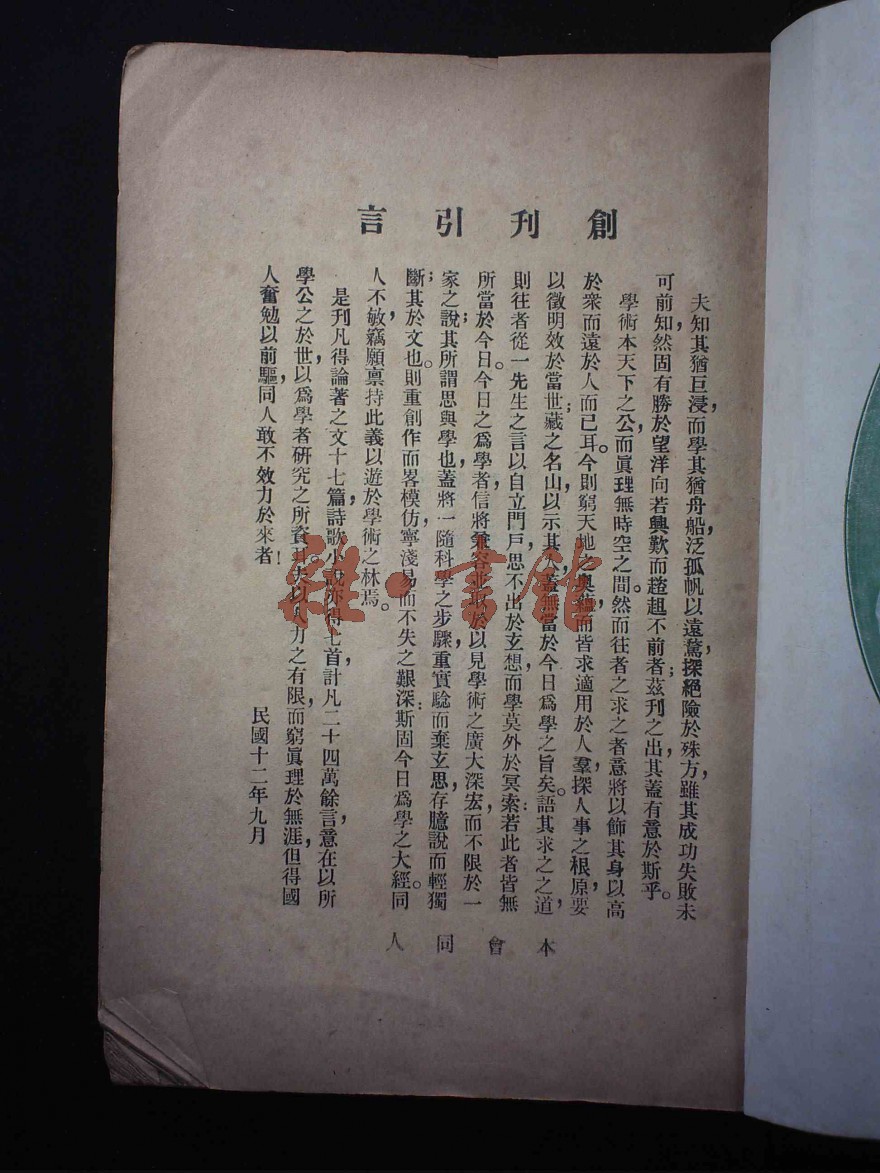 創刊引言
夫知其猶巨浸，而學其猶舟船，泛孤帆以遠騖，探絕險於殊方，雖其成功失敗未
可前知，然固有勝於望洋向若興歎而趦趄不前者；茲刊之出，其蓋有意於斯乎。
學術本天下之公，而眞理無時空之間。然而往者之求之者，意將以飾其身以高
於衆而遠於人而已耳。今則窮天地之奧蘊，而皆求適用於人羣，探人事之根原，要
以徵明效於當世；藏之名山，以示其人，蓋無當於今日爲學之旨矣。語其求之之道，
則往者從一先生之言以自立門戶，思不出於玄想，而學莫外於冥索：若此者皆無
所當於今日。今日之爲學者，信將兼容並取，於以見學術之廣大深宏，而不限於一
家之說；其所謂思與學也，蓋將一隨科學之步驟，重實騐而棄玄思，存臆說而輕獨
斷；其於文也，則重創作而畧模仿，寧淺易而不失之艱深：斯固今日爲學之大經。同
人不敏，竊願禀持此義以遊於學術之林焉。
是刊凡得論著之文十七篇，詩歌小說亦得七首，計凡二十四萬餘言，意在以所
學公之於世，以爲學者研究之所資。夫以人力之有限，而窮眞理於無涯，但得國
人奮勉以前驅，同人敢不效力於來者！
民國十二年九月
本會同人
雜·書館